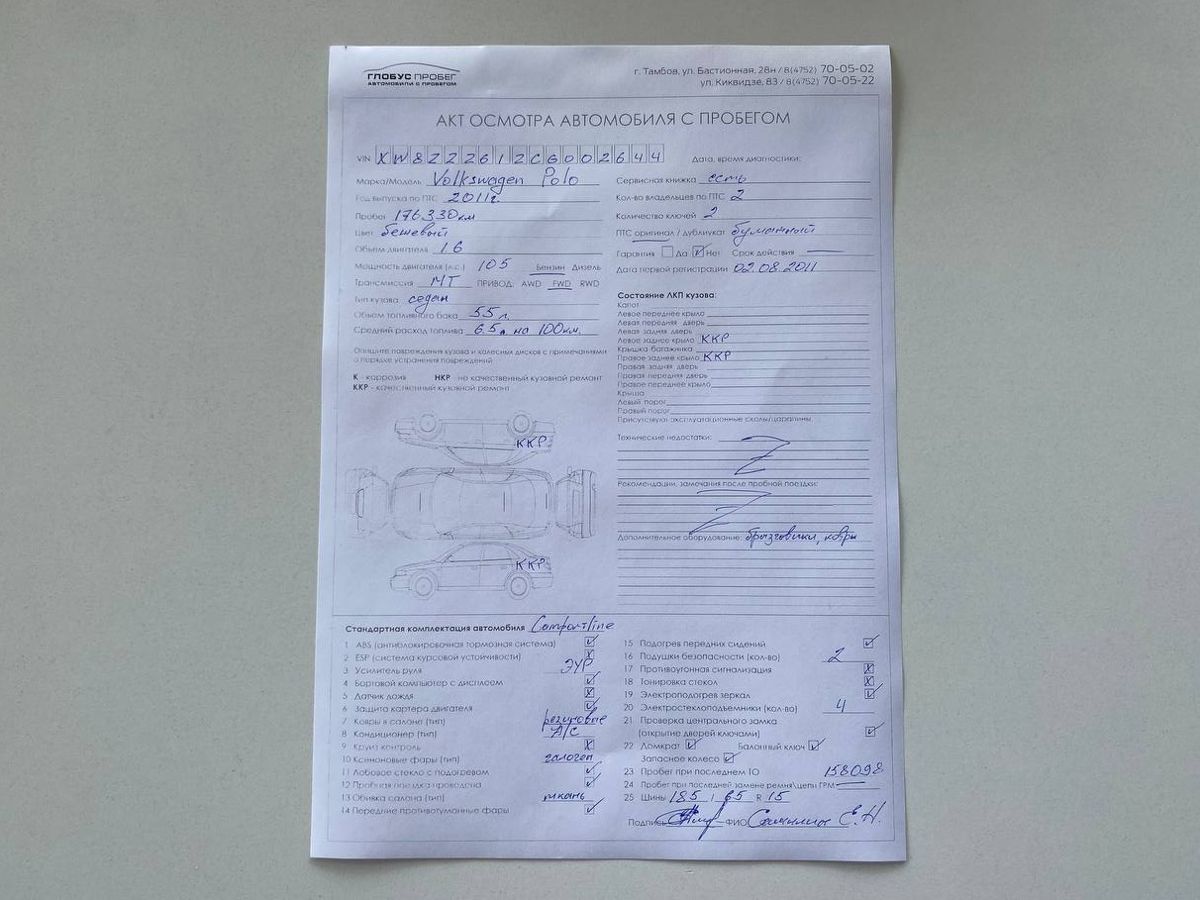 ГЛОБУС ПРОБЕГ
АВТОМОБИЛИ С ПРОБЕГОМ
г. Тамбов, ул. Бастионная, 28н / 8(4752) 70-05-02
ул. Киквидзе, 83 / 8(4752) 70-05-22
АКТ ОСМОТРА АВТОМОБИЛЯ С ПРОБЕГОМ
VIN XW8ZZZ61ZCG002644
Дата, время диагностики:
Марка/Модель Volkswagen Polo
Год выпуска по ПТС 2011г.
Пробег 176330км
Цвет бежевый
Объем двигателя 1.6
Мощность двигателя (л.с.) 105 Бензин Дизель
Трансмиссия МТ ПРИВОД: AWD FWD RWD
Тип кузова седан
Объем топливного бака 55 л.
Средний расход топлива 6.5л на 100км.
Сервисная книжка есть
Кол-во владельцев по ПТС 2
Количество ключей 2
ПТС оригинал / дубликат бумажный
Гарантия Да Нет Срок действия
Дата первой регистрации 02.08.2011
Опишите повреждения кузова и колесных дисков с примечаниями
о порядке устранения повреждений
К - коррозия НКР - не качественный кузовной ремонт
ККР - качественный кузовной ремонт
ККР
ККР
Состояние ЛКП кузова:
Капот
Левое переднее крыло
Левая передняя дверь
Левая задняя дверь
Левое заднее крыло ККР
Крышка багажника
Правое заднее крыло ККР
Правая задняя дверь
Правая передняя дверь
Правое переднее крыло
Крыша
Левый порог
Правый порог
Присутствуют эксплуатационные сколы/царапины.
Технические недостатки: Z
Рекомендации, замечания после пробной поездки: Z
Дополнительное оборудование: брызговики, ковры
Стандартная комплектация автомобиля Comfortline
1 ABS (антиблокировочная тормозная система)
2 ESP (система курсовой устойчивости)
3 Усилитель руля ЭУР
4 Бортовой компьютер с дисплеем
5 Датчик дождя
6 Защита картера двигателя
7 Ковры в салоне (тип) резиновые
8 Кондиционер (тип) А/С
9 Круиз контроль
10 Ксеноновые фары (тип) галоген
11 Лобовое стекло с подогревом
12 Пробная поездка проведена
13 Обивка салона (тип) ткань
14 Передние противотуманные фары
15 Подогрев передних сидений
16 Подушки безопасности (кол-во) 2
17 Противоугонная сигнализация
18 Тонировка стекол
19 Электроподогрев зеркал
20 Электростеклоподъемники (кол-во) 4
21 Проверка центрального замка
(открытие дверей ключами)
22 Домкрат Балонный ключ
Запасное колесо
23 Пробег при последнем ТО 158098
24 Пробег при последней замене ремня\цепи ГРМ
25 Шины 185 / 65 R 15
Подпись ФИО Е.Н.